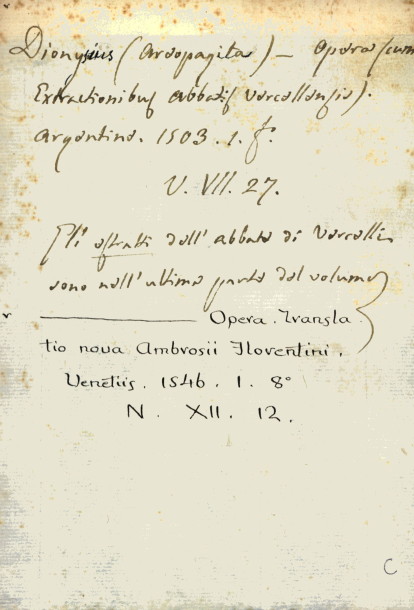 Dionysius (Areopagita) — Opera (cum
Extractionibus abbatis Vercellensis).
Argentine. 1503. 1. fo.
V. VII. 27.
Gli estratti dell'abbate di Vercelli
sono nell'ultima parte del volume
——— Opera. Transla
tio nova Ambrosii Florentini.
Venetiis. 1546. 1. 8°
N. XII. 12.
C